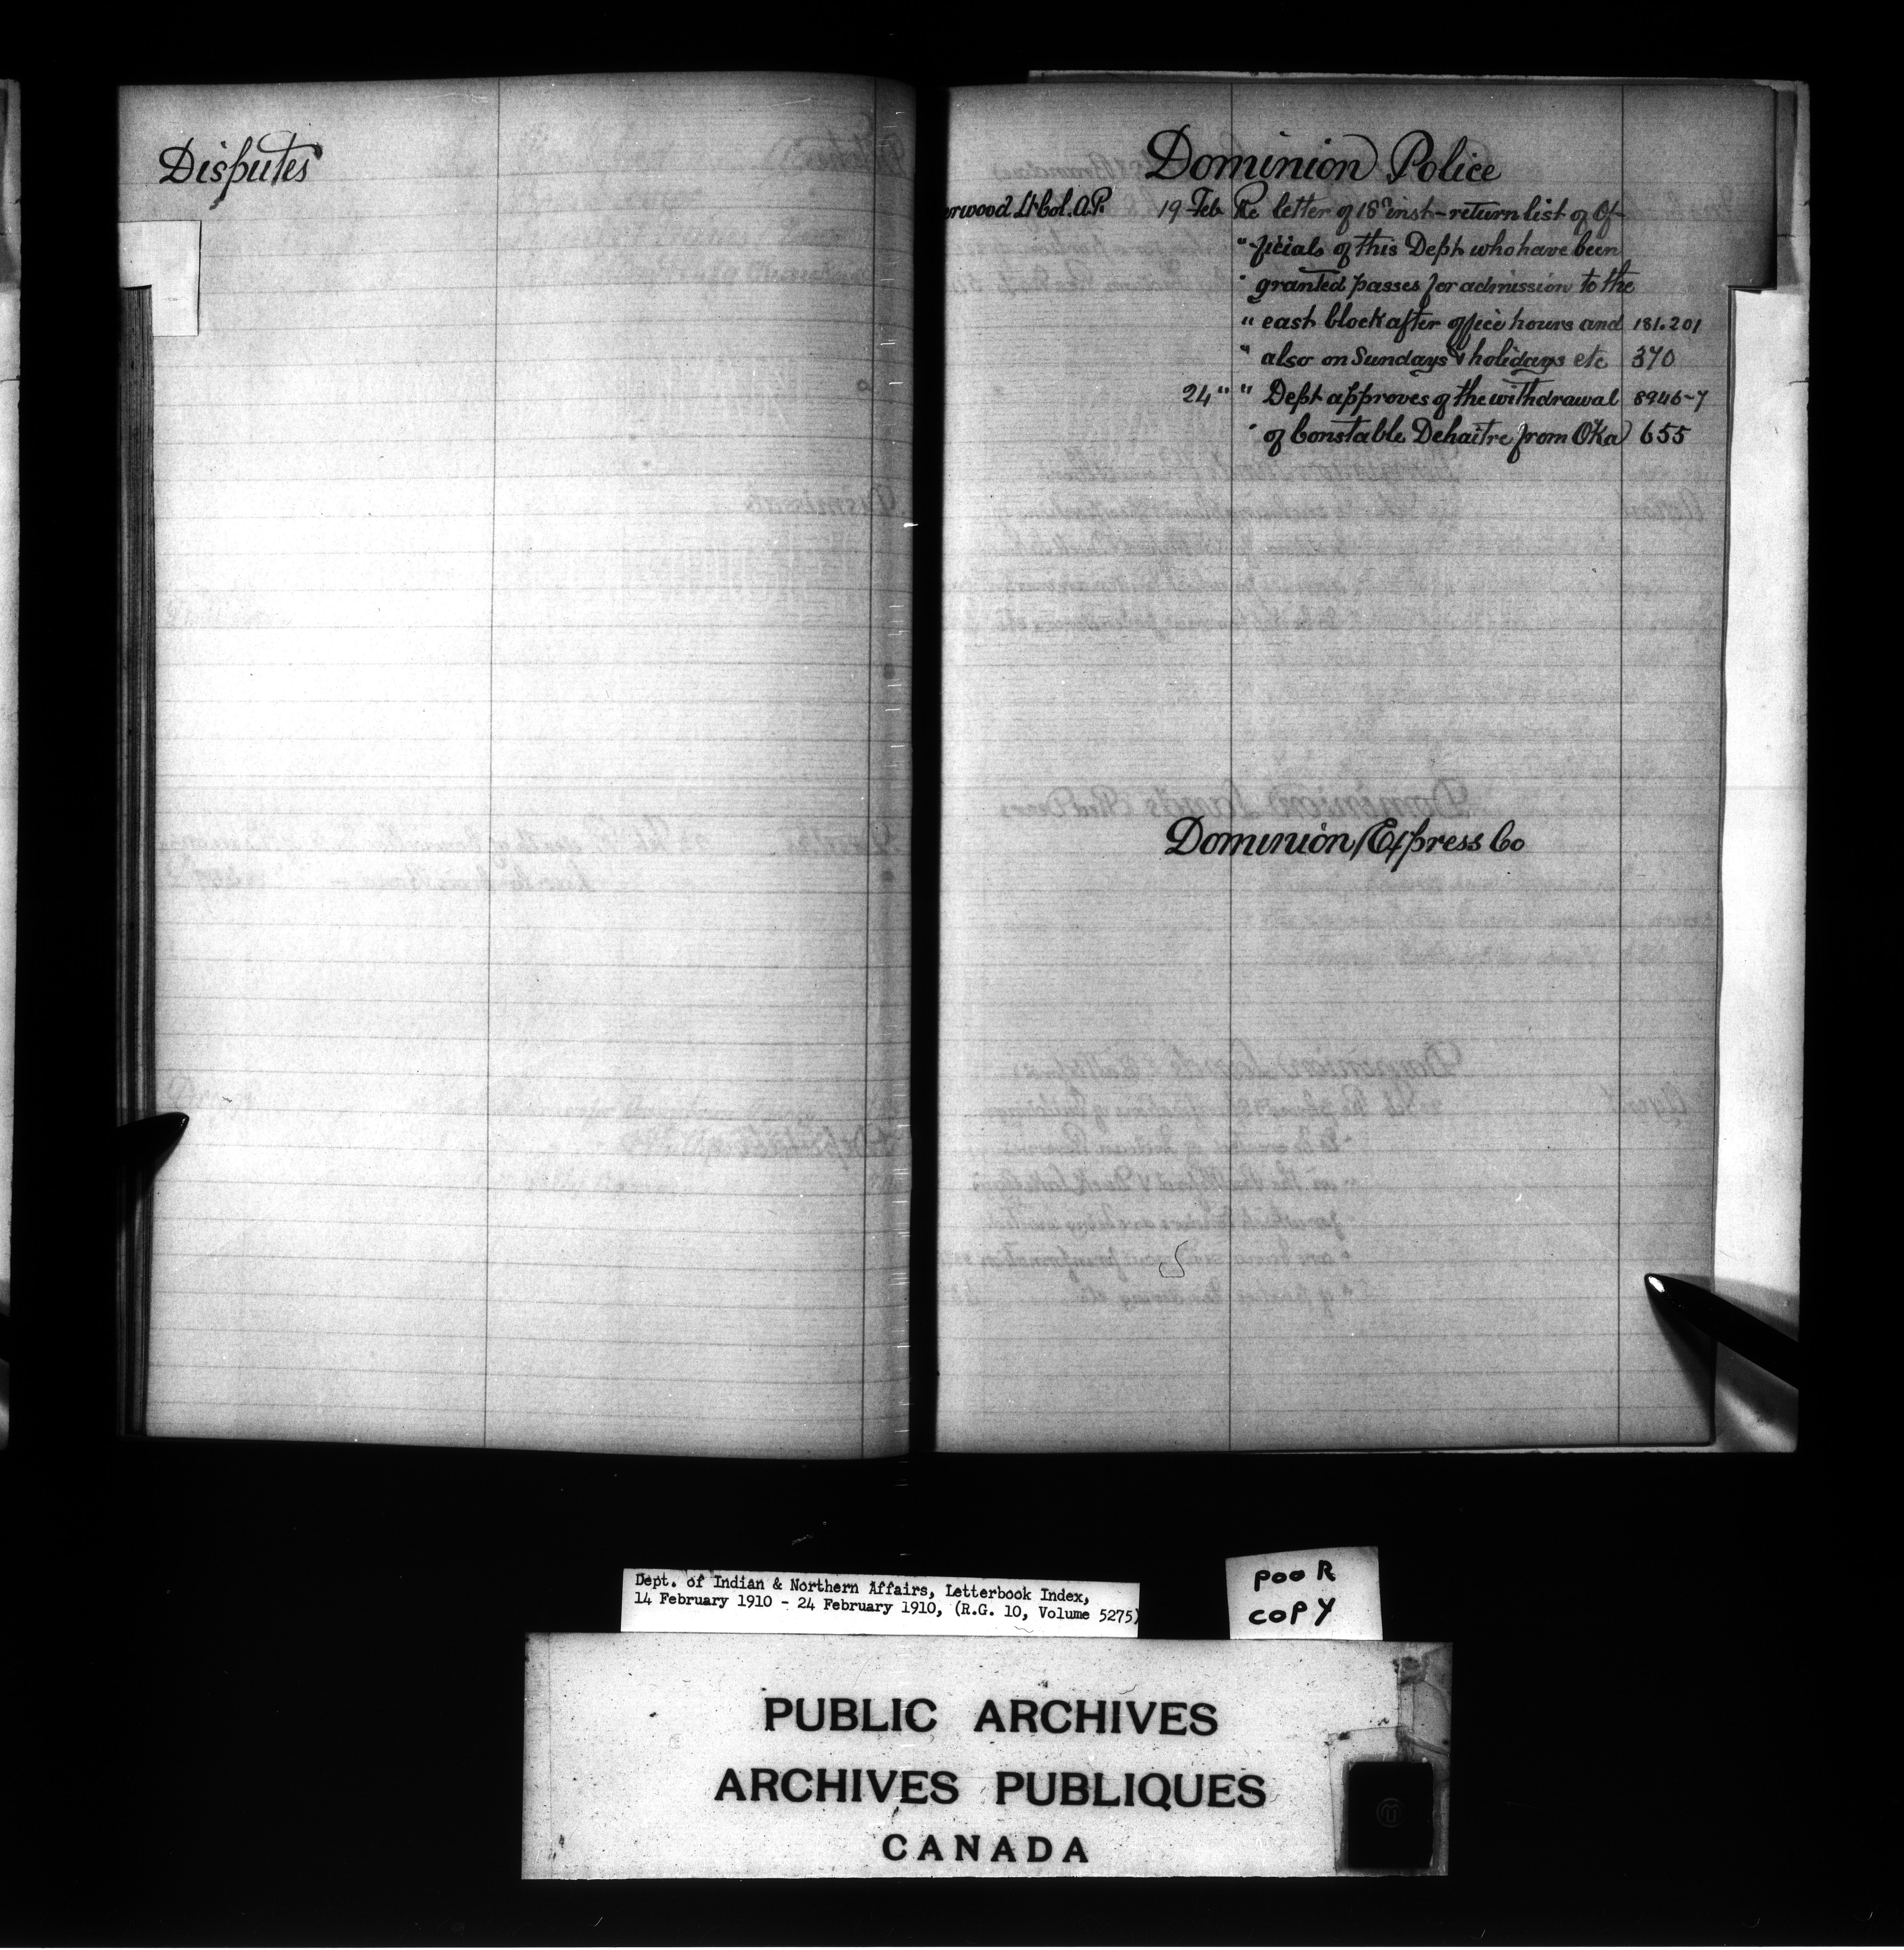 Disputes
Dominion Police
erwood Lt Col. A.P. 19 Feb Re letter of 18th inst - return list of Of-
" ficials of this Dept who have been
" granted passes for admission to the
" east block after office hours and 181.201
" also on Sundays & holidays etc 370
24 " " Dept approves of the withdrawal 8946-7
" of Constable Dehaitre from Oka 655
Dominion Express Co
Dept. of Indian & Northern Affairs, Letterbook Index,
14 February 1910 - 24 February 1910, (R.G. 10, Volume 5275)
POOR
COPY
PUBLIC ARCHIVES
ARCHIVES PUBLIQUES
CANADA